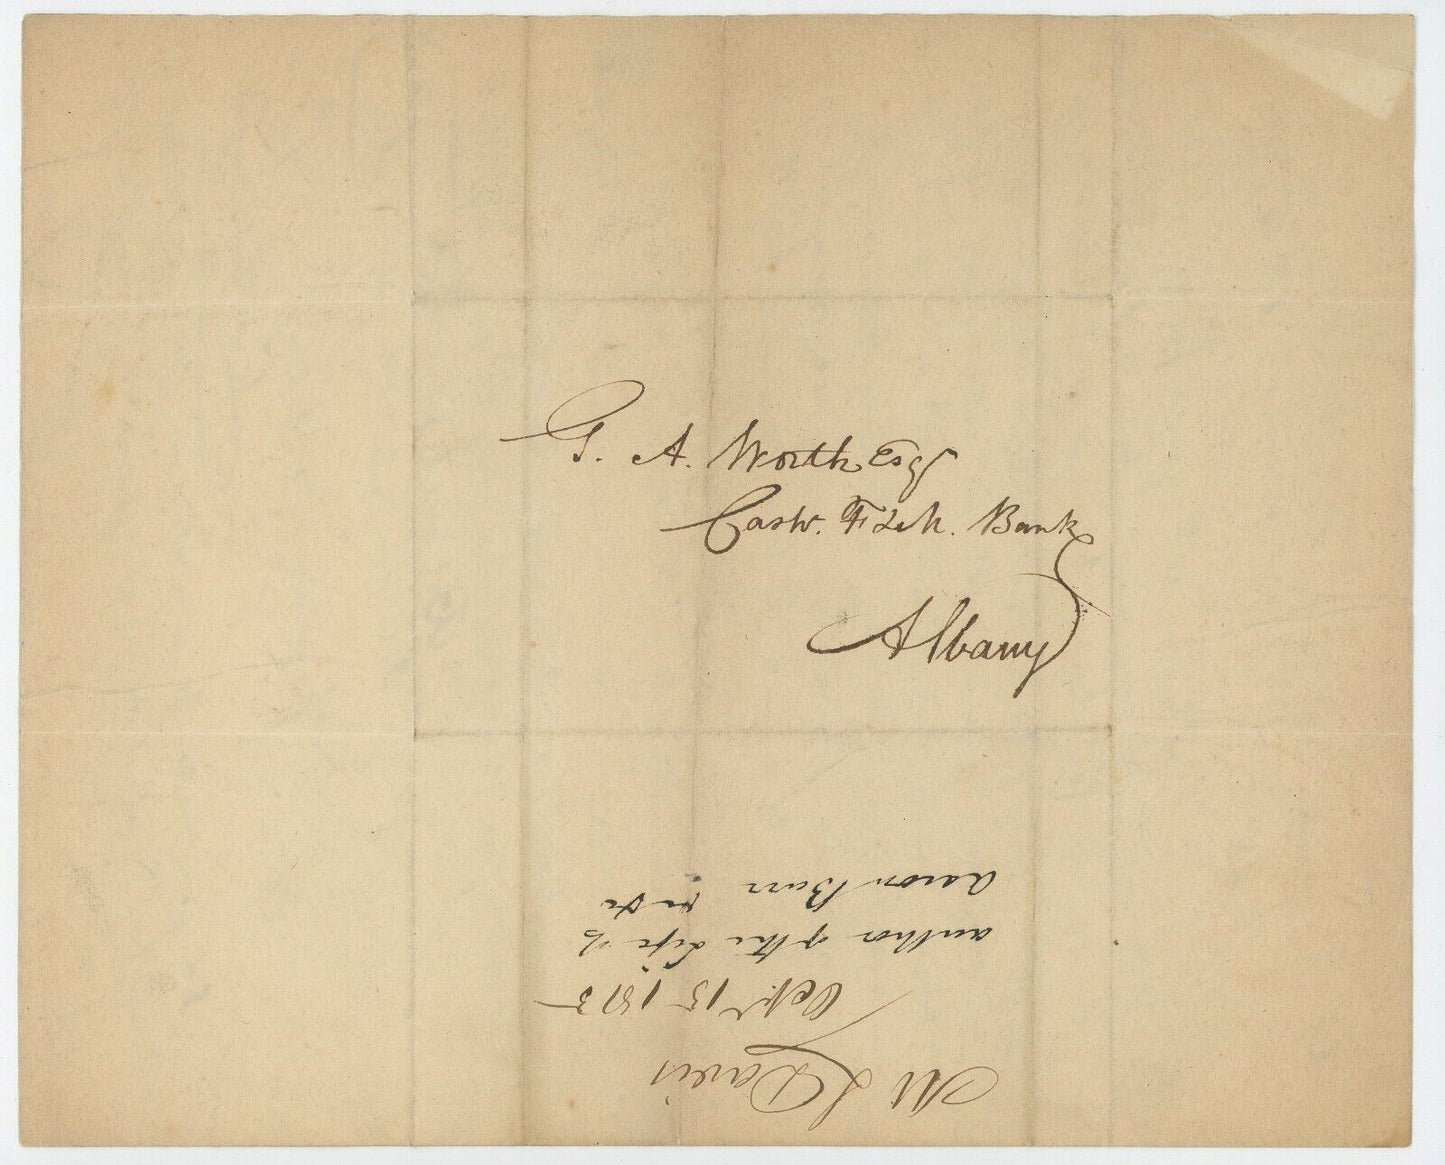 G. A. Worth Esq
Cashr. F & M. Bank
Albany
M L Davis
Octr 15 1813
author of the Life of
Aaron Burr &c &c